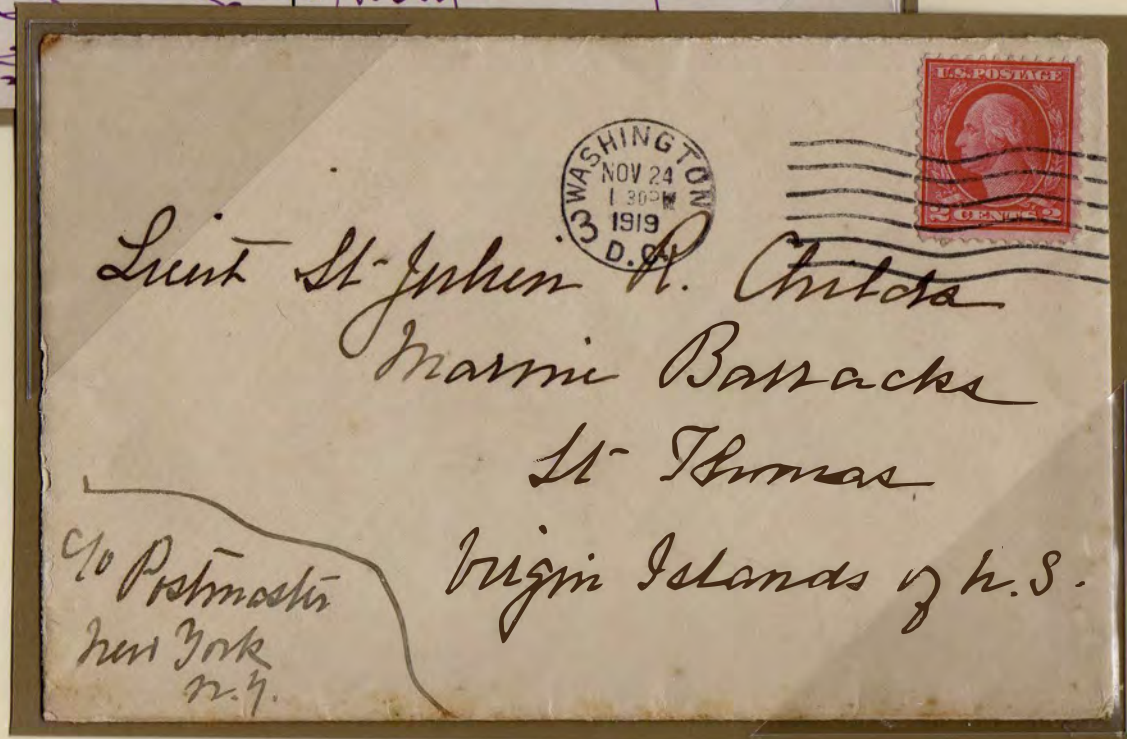 U.S. POSTAGE
2 CENTS 2
WASHINGTON
NOV 24
1 30 PM
1919
D.C.
3
Lieut St Julien R. Childs
Marine Barracks
St Thomas
Virgin Islands of U.S.
c/o Postmaster
New York
N.Y.